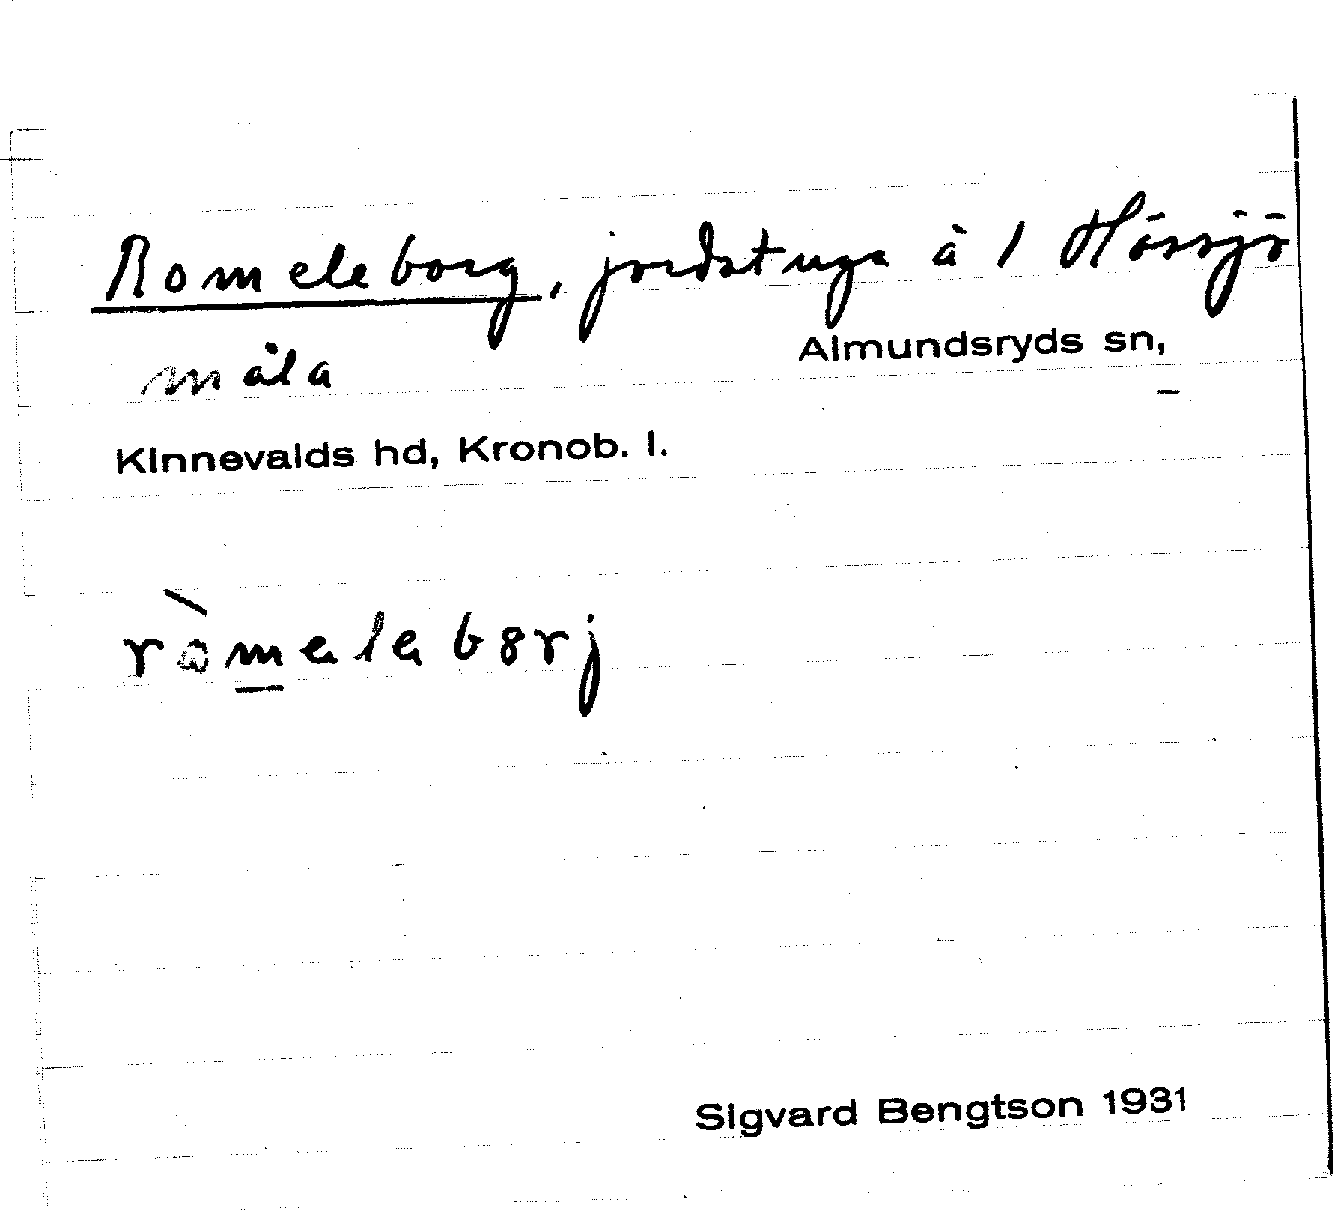 Romeleborg, jordstuga å 1 Hössjö
måla
Almundsryds sn,
Kinnevalds hd, Kronob. l.
ròmeleb8rj
Sigvard Bengtson 1931